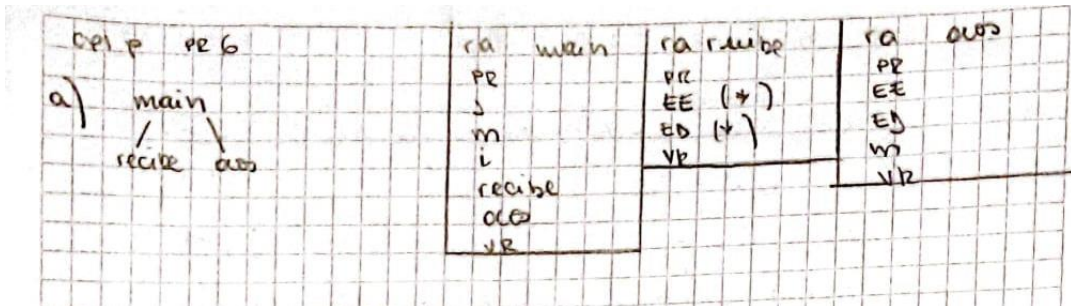 cplp PR 6
a) main
recibe dos
ra main
PR
j
m
i
recibe
dos
VR
ra recibe
PR
EE (*)
ED (*)
VR
ra dos
PR
EE
ED
m
VR